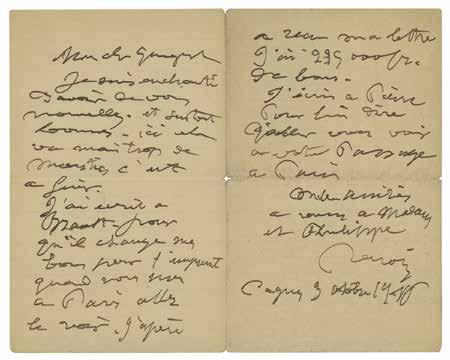 Mon cher Gangnat
Je suis enchanté
d'avoir de vos
nouvelles. et surtout
bonnes. ici cela
va mais trop de
c'est
a
J'ai écrit a
pour
qu'il change mes
bons pour l'emprunt
quand vous
à Paris allez
le voir. J'espère
a reçu ma lettre
J'ai 225 000 fr.
de bons.
J'écris a Pierre
pour lui dire
d'aller vous voir
a votre passage
a Paris
amitiés
a vous a Madame
et Philippe
Renoir
Cagnes 3 octobre